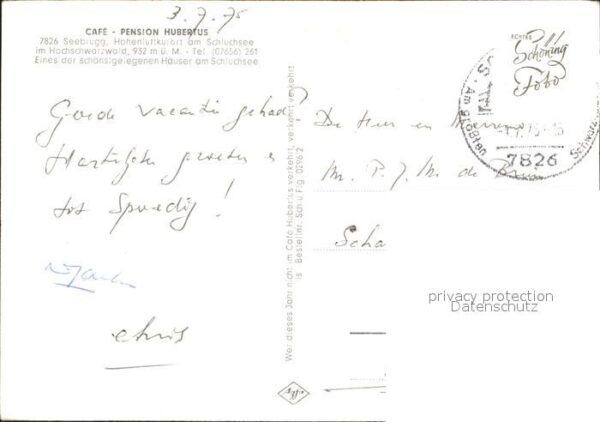 3.7.75
CAFÉ - PENSION HUBERTUS
7826 Seebrugg, Höhenluftkurort am Schluchsee
im Hochschwarzwald, 932 m ü. M. - Tel. (07656) 261
Eines der schönstgelegenen Häuser am Schluchsee
Goede vacantie gehad?
Hartelijke groeten en
tot Spoedig!
Chris
Wer dieses Jahr nicht im Café Hubertus verkehrt, verkehrt verkehrt
Bestellnr. Schu Flg 0296/2
Agfa
ECHTES
Schöning
Foto
Am größten
7826
De Heer en Mevrouw
Mr. P. J. M. de
Scha
privacy protection
Datenschutz